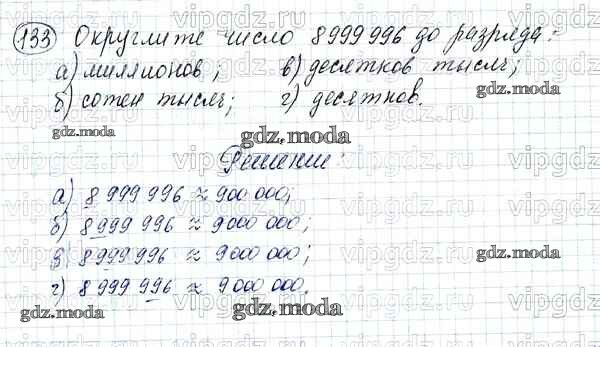 133 Округлите число 8 999 996 до разряда:
а) миллионов; в) десятков тысяч;
б) сотен тысяч; г) десятков.
Решение:
а) 8 999 996 ≈ 900 000;
б) 8 999 996 ≈ 9 000 000;
в) 8 999 996 ≈ 9 000 000;
г) 8 999 996 ≈ 9 000 000.
gdz.moda
gdz.moda
gdz.moda
gdz.moda
gdz.moda
gdz.moda
vipgdz.ru